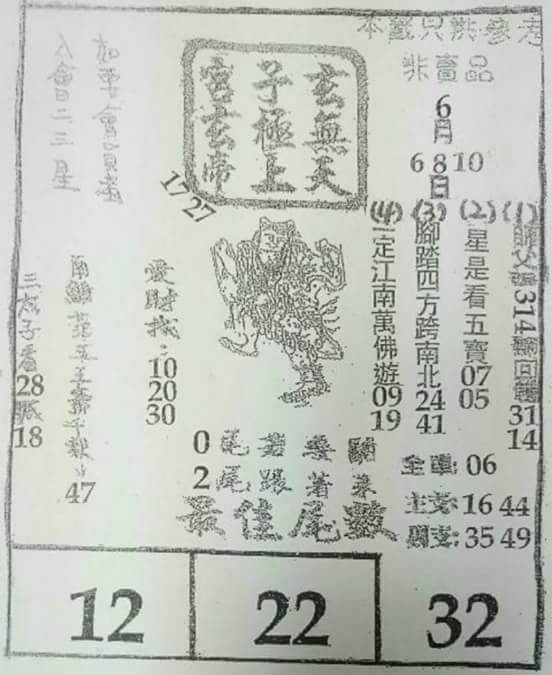 本籤只供參考
非賣品
6
月
6 8 10
日
玄無天
子極上
宮玄帝
17 27
加要會員壺
入會日二三星
(1)師父 314 翻回轉 31 14
(2)一星是看五寶 07 05
(3)腳踏四方跨南北 24 41
(4)一定江南萬佛遊 09 19
愛財找:10 20 30
南鯤 五王 千歲 47
三太子看 28 18
0尾若要開
2尾跟著來
最佳尾數
全車:06
主支:16 44
關支:35 49
12
22
32